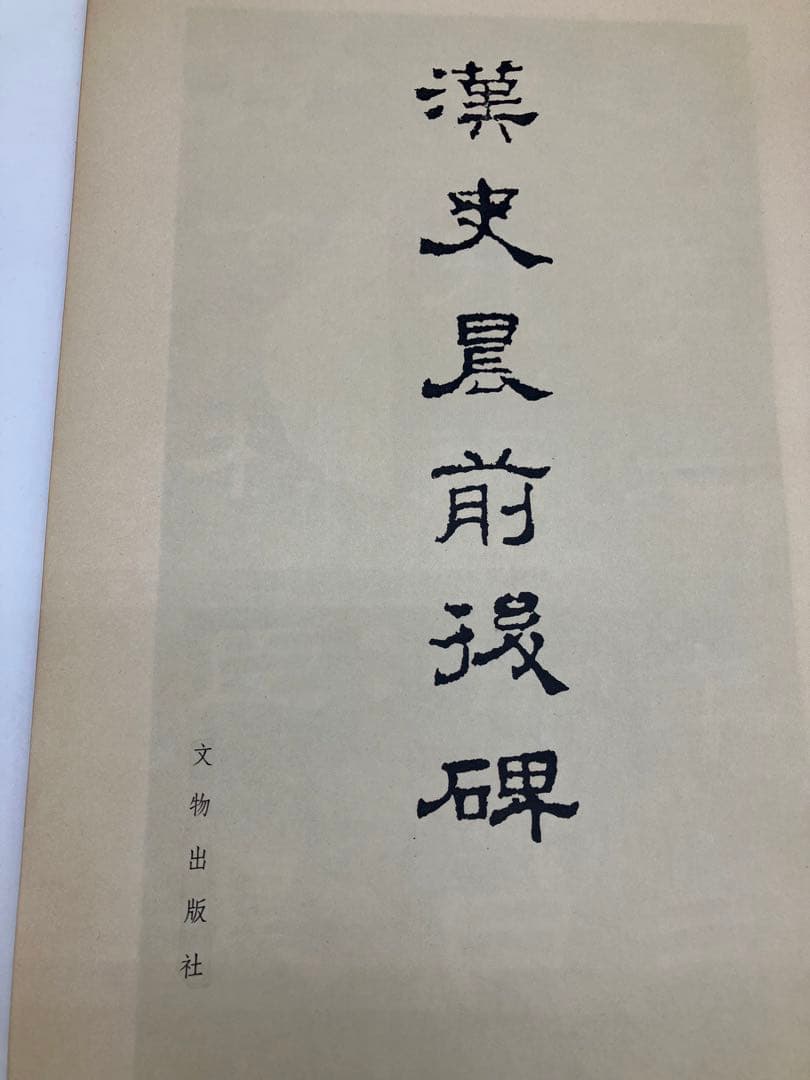 漢史晨前後碑
文物出版社